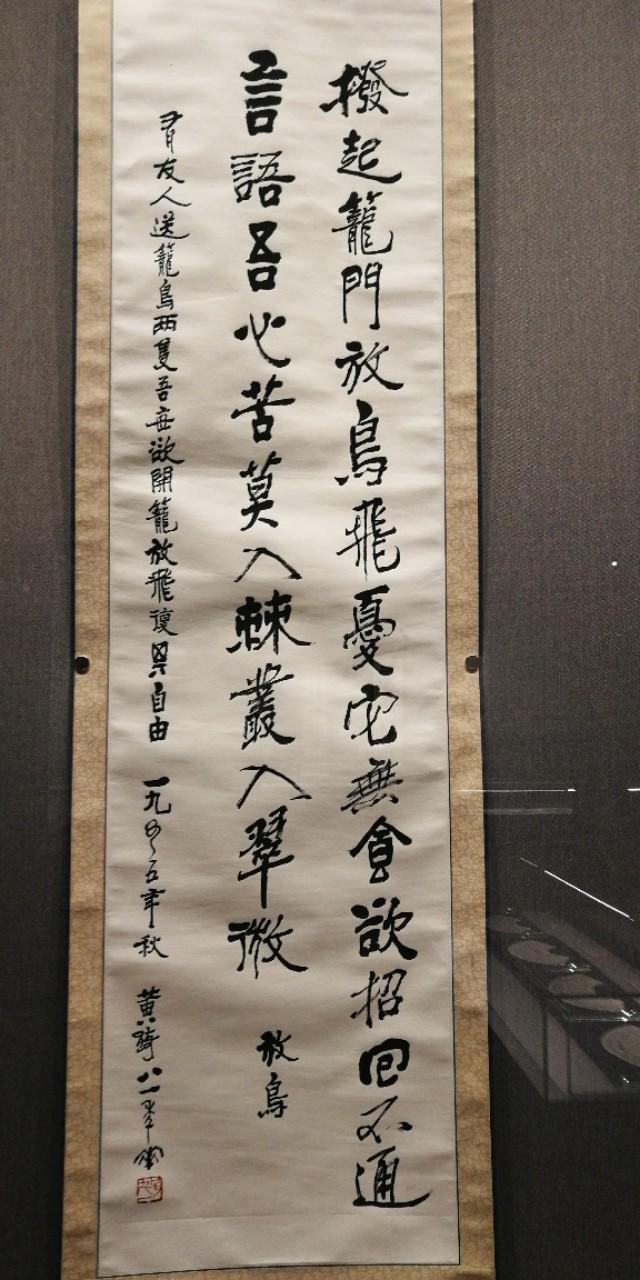 撥起籠門放鳥飛憂它無食欲招回不通
言語吾心苦莫入棘叢入翠微 放鳥
有友人送籠鳥兩隻吾每欲開籠放飛復其自由 一九四五年秋 黃綺八一年書